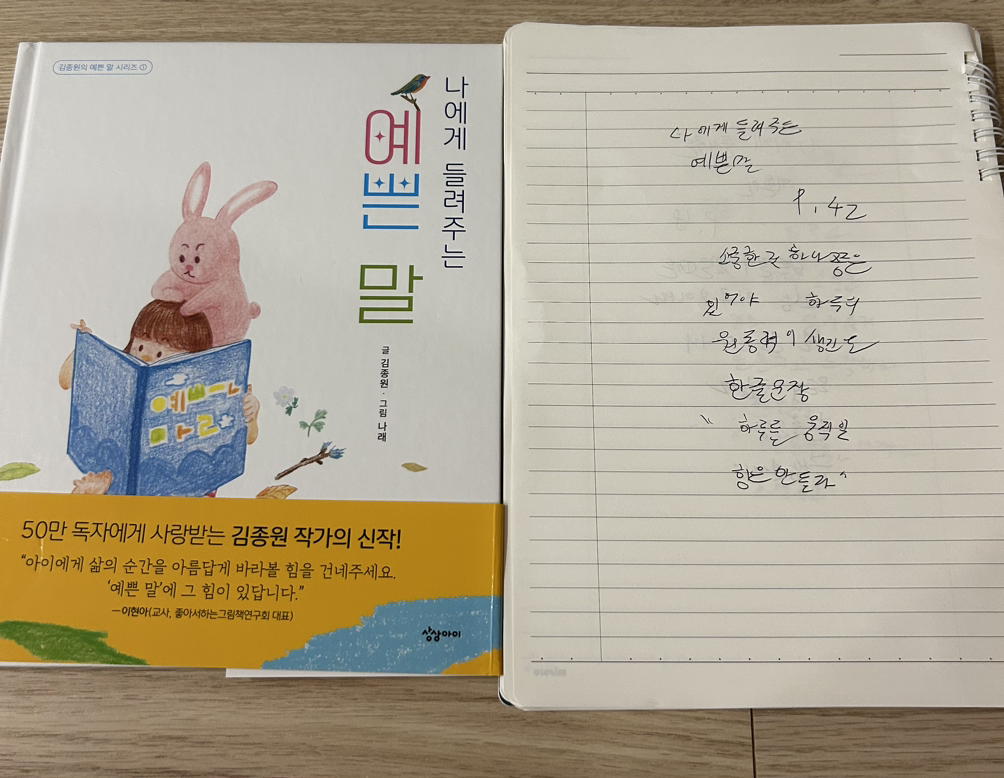 김종원의 예쁜 말 시리즈 ①
나에게 들려주는
예쁜
말
글 김종원 · 그림 나래
예쁘ㄴ
마ㄹ
50만 독자에게 사랑받는 김종원 작가의 신작!
“아이에게 삶의 순간을 아름답게 바라볼 힘을 건네주세요.
‘예쁜 말’에 그 힘이 있답니다.”
—이현아(교사, 좋아서하는그림책연구회 대표)
상상아이
나에게 들려주는
예쁜 말
P. 42
소중한 것 하나쯤은
있어야 하루의
원동력이
한글문장
" 하루를 움직일
힘은 만들라"